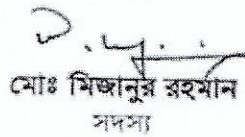 মোঃ মিজানুর রহমান
সদস্য